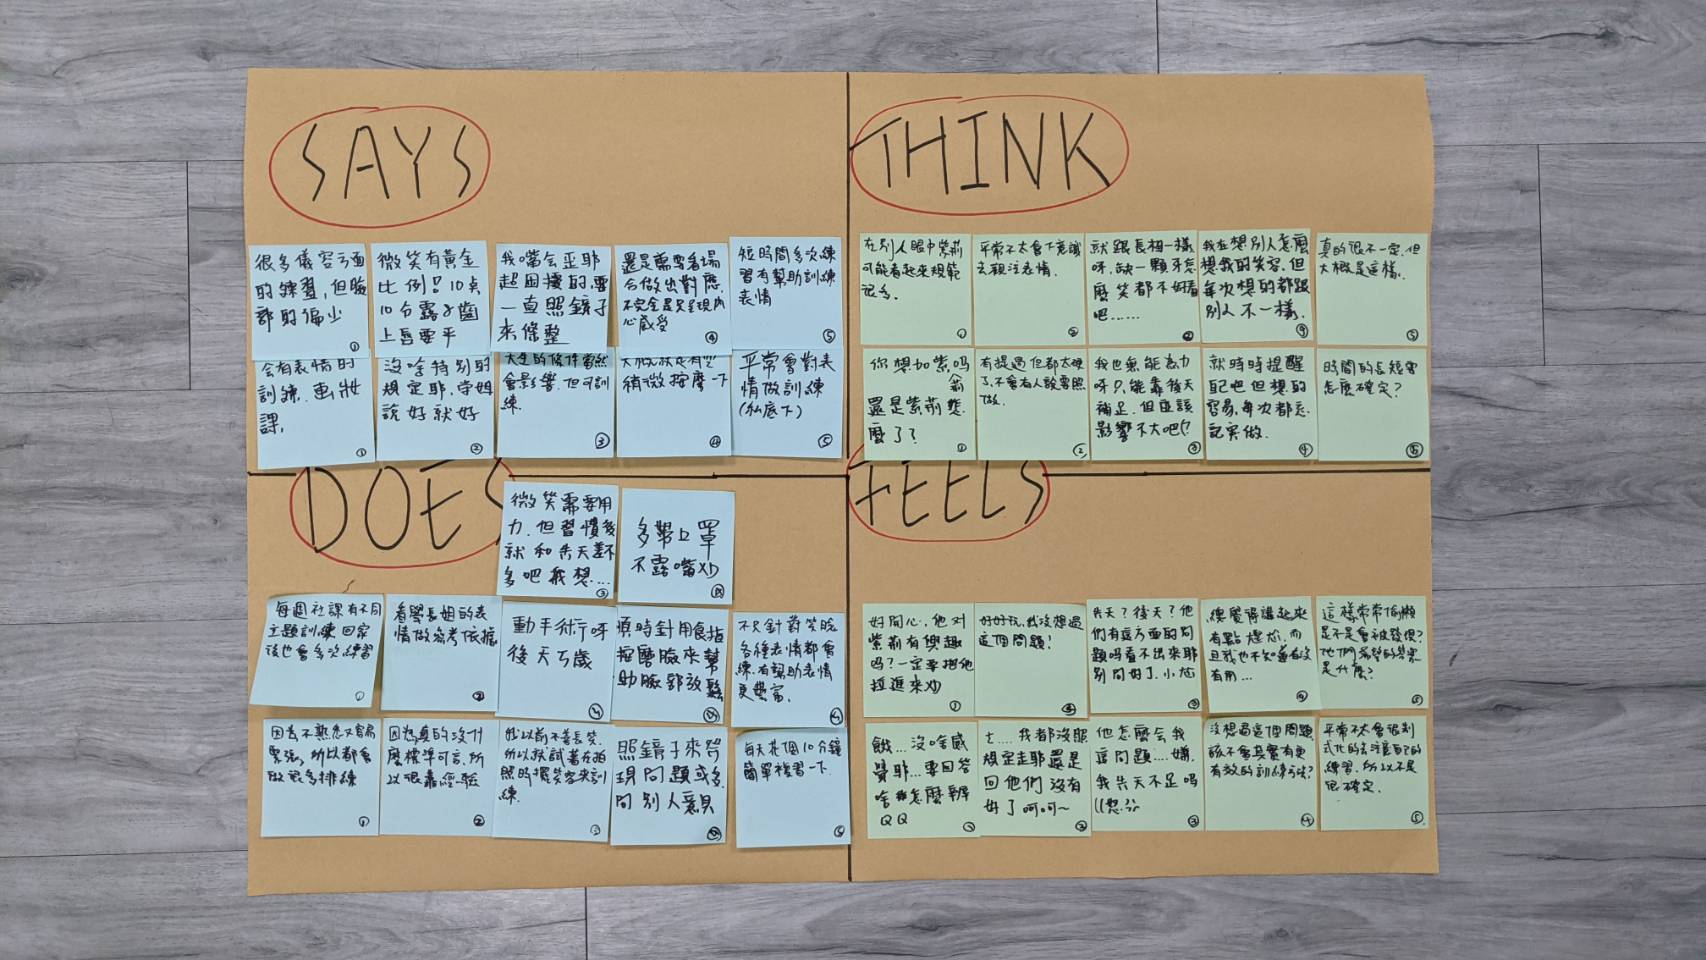 SAYS
很多儀容方面
的練習,但臉
部的偏少
①
微笑有黃金
比例?10点
10分露8齒
上唇要平
我嘴會歪耶
超困擾的,要
一直照鏡子
來條整
還是需要看場
合做出對應,
不完全是只呈現內
心感受
④
短時間多次練
習有幫助訓練
表情
⑤
會有表情的
訓練、画妝
課,
①
沒啥特別的
規定耶,学姐
說好就好
②
會影響,但可訓
練.
③
稍微按摩一下
④
平常會對表
情做訓練
(私底下)
⑤
THINK
在別人眼中紫荊
可能看起來規範
很多。
①
平常不太會下意識
去觀注表情.
②
就跟長相一樣
呀,缺一顆牙怎
麼笑都不好看
吧......
我在想別人怎麼
想我的笑容,但
每次想的都跟
別人不一樣.
④
真的很不一定,但
大概是這樣.
⑤
你想加紫吗
還是紫荊獎
麼了?
①
有提過但都太硬
了,不會有人說要照
做.
②
我也無能為力
呀只能靠後天
補足,但應該
影響不大吧(?
③
就時時提醒
自己吧但想的
容易,每次都忘
記實做.
④
時間的長短要
怎麼確定?
⑤
DOES
微笑需要用
力,但習慣後
就和先天差不
多吧我想...
③
多帶口罩
不露嘴炒
每週社課有不同
主題訓練回家
後也會多次練習
①
看學長姐的表
情做參考依據
②
動手術呀
後天ㄎ歲
順時針用食指
按摩臉來幫
助臉部放鬆
不只針對笑臉
各種表情都要
練,有幫助表情
更豐富.
因為不熟悉又容易
緊張,所以都會
做很多排練
①
因為真的沒什
麼標準可言,所
以很靠經驗
②
我以前不善長笑,
所以就試著在拍
照時擺笑容來訓
練.
照鏡子來發
現問題或多
問別人意見
每天花個10分鐘
簡單複習一下.
⑤
FEELS
好開心,他对
紫荊有興趣
吗?一定要把他
拉進來炒
①
好好玩,我沒想過
這個問題!
②
先天?後天?他
們有這方面的問
題吗看不出來耶
別問好了,小尬
③
總覺得講起來
有點尷尬,而
且我也不知道有沒
有用...
④
這樣常常偷懶
是不是會被發現?
他們希望的答案
是什麼?
⑤
餓...沒啥感
覺耶...要回答
啥我怎麼辦
QQ
①
ㄜ....我都沒照
規定走耶還是
回他們沒有
好了呵呵~
②
他怎麼會我
這問題....嫌
我先天不足吗
③
沒想過這個問題
該不會其實有更
有效的訓練方法?
④
平常不太會很制
式化的去注意自己的
練習,所以不是
很確定.
⑤